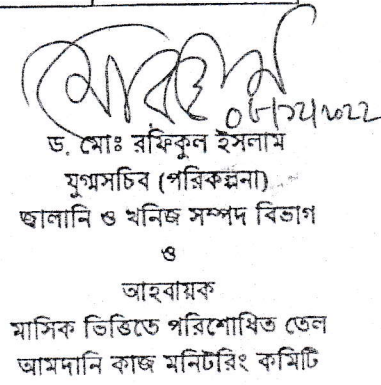 ০৮/১২/২০২২
ড. মোঃ রফিকুল ইসলাম
যুগ্মসচিব (পরিকল্পনা)
জ্বালানি ও খনিজ সম্পদ বিভাগ
ও
আহবায়ক
মাসিক ভিত্তিতে পরিশোধিত তেল
আমদানি কাজ মনিটরিং কমিটি